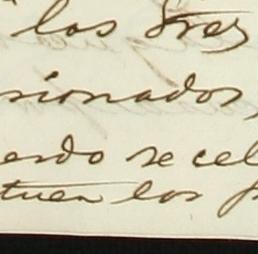 los Sres
sionados,
erdo se cel
tuen los